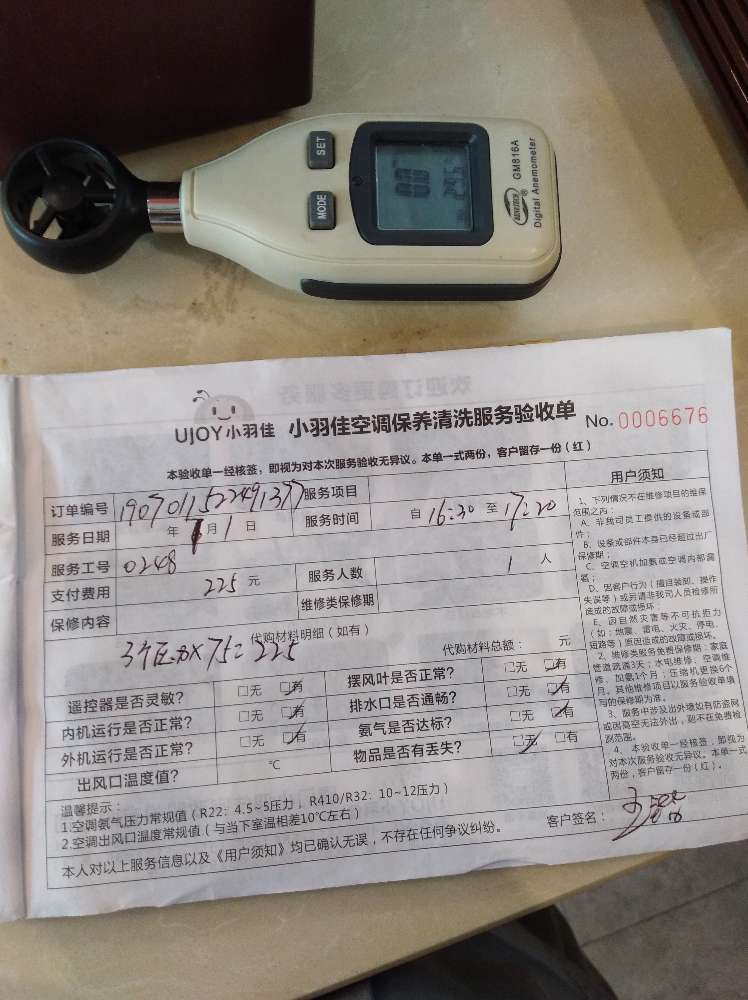 SET
MODE
GM816A
Digital Anemometer
UJOY小羽佳 小羽佳空调保养清洗服务验收单 No. 0006676
本验收单一经核签，即视为对本次服务验收无异议。本单一式两份，客户留存一份（红）
订单编号 服务项目
服务日期 年 月 1 日 服务时间 自 16:30 至 17:20
服务工号 0248
支付费用 225 元 服务人数 1 人
保修内容 维修类保修期
代购材料明细（如有）
3个 X75=225
代购材料总额： 元
遥控器是否灵敏？ □无 □有 摆风叶是否正常？ □无 □有
内机运行是否正常？ □无 □有 排水口是否通畅？ □无 □有
外机运行是否正常？ □无 □有 氨气是否达标？ □无 □有
出风口温度值？ ℃ 物品是否有丢失？ □无 □有
温馨提示：
1.空调氨气压力常规值（R22：4.5~5压力，R410/R32：10~12压力）
2.空调出风口温度常规值（与当下室温相差10℃左右）
客户签名：
本人对以上服务信息以及《用户须知》均已确认无误，不存在任何争议纠纷。
用户须知
1、下列情况不在维修项目的维保
范围之内：
A、非我司员工提供的设备或部
件；
B、设备或部件本身已经超过出厂
保修期；
C、空调空机加氨或空调内部漏
氨；
D、因客户行为（擅自装卸、操作
失误等）或另请非我司人员检修所
造成的故障或损坏；
E、因自然灾害等不可抗拒力
（如：地震、雷电、火灾、停电、
短路等）原因造成的故障或损坏。
2、维修类服务免费保修期：家庭
管道疏通3天；水电维修、空调维
修、加氨1个月；压缩机更换6个
月。其他维修项目以服务验收单填
写的保修期为准。
3、服务中涉及出外墙如有防盗网
或因高空无法外出，则不在免费检
测范围。
4、本验收单一经核签，即视为
对本次服务验收无异议。本单一式
两份，客户留存一份（红）。